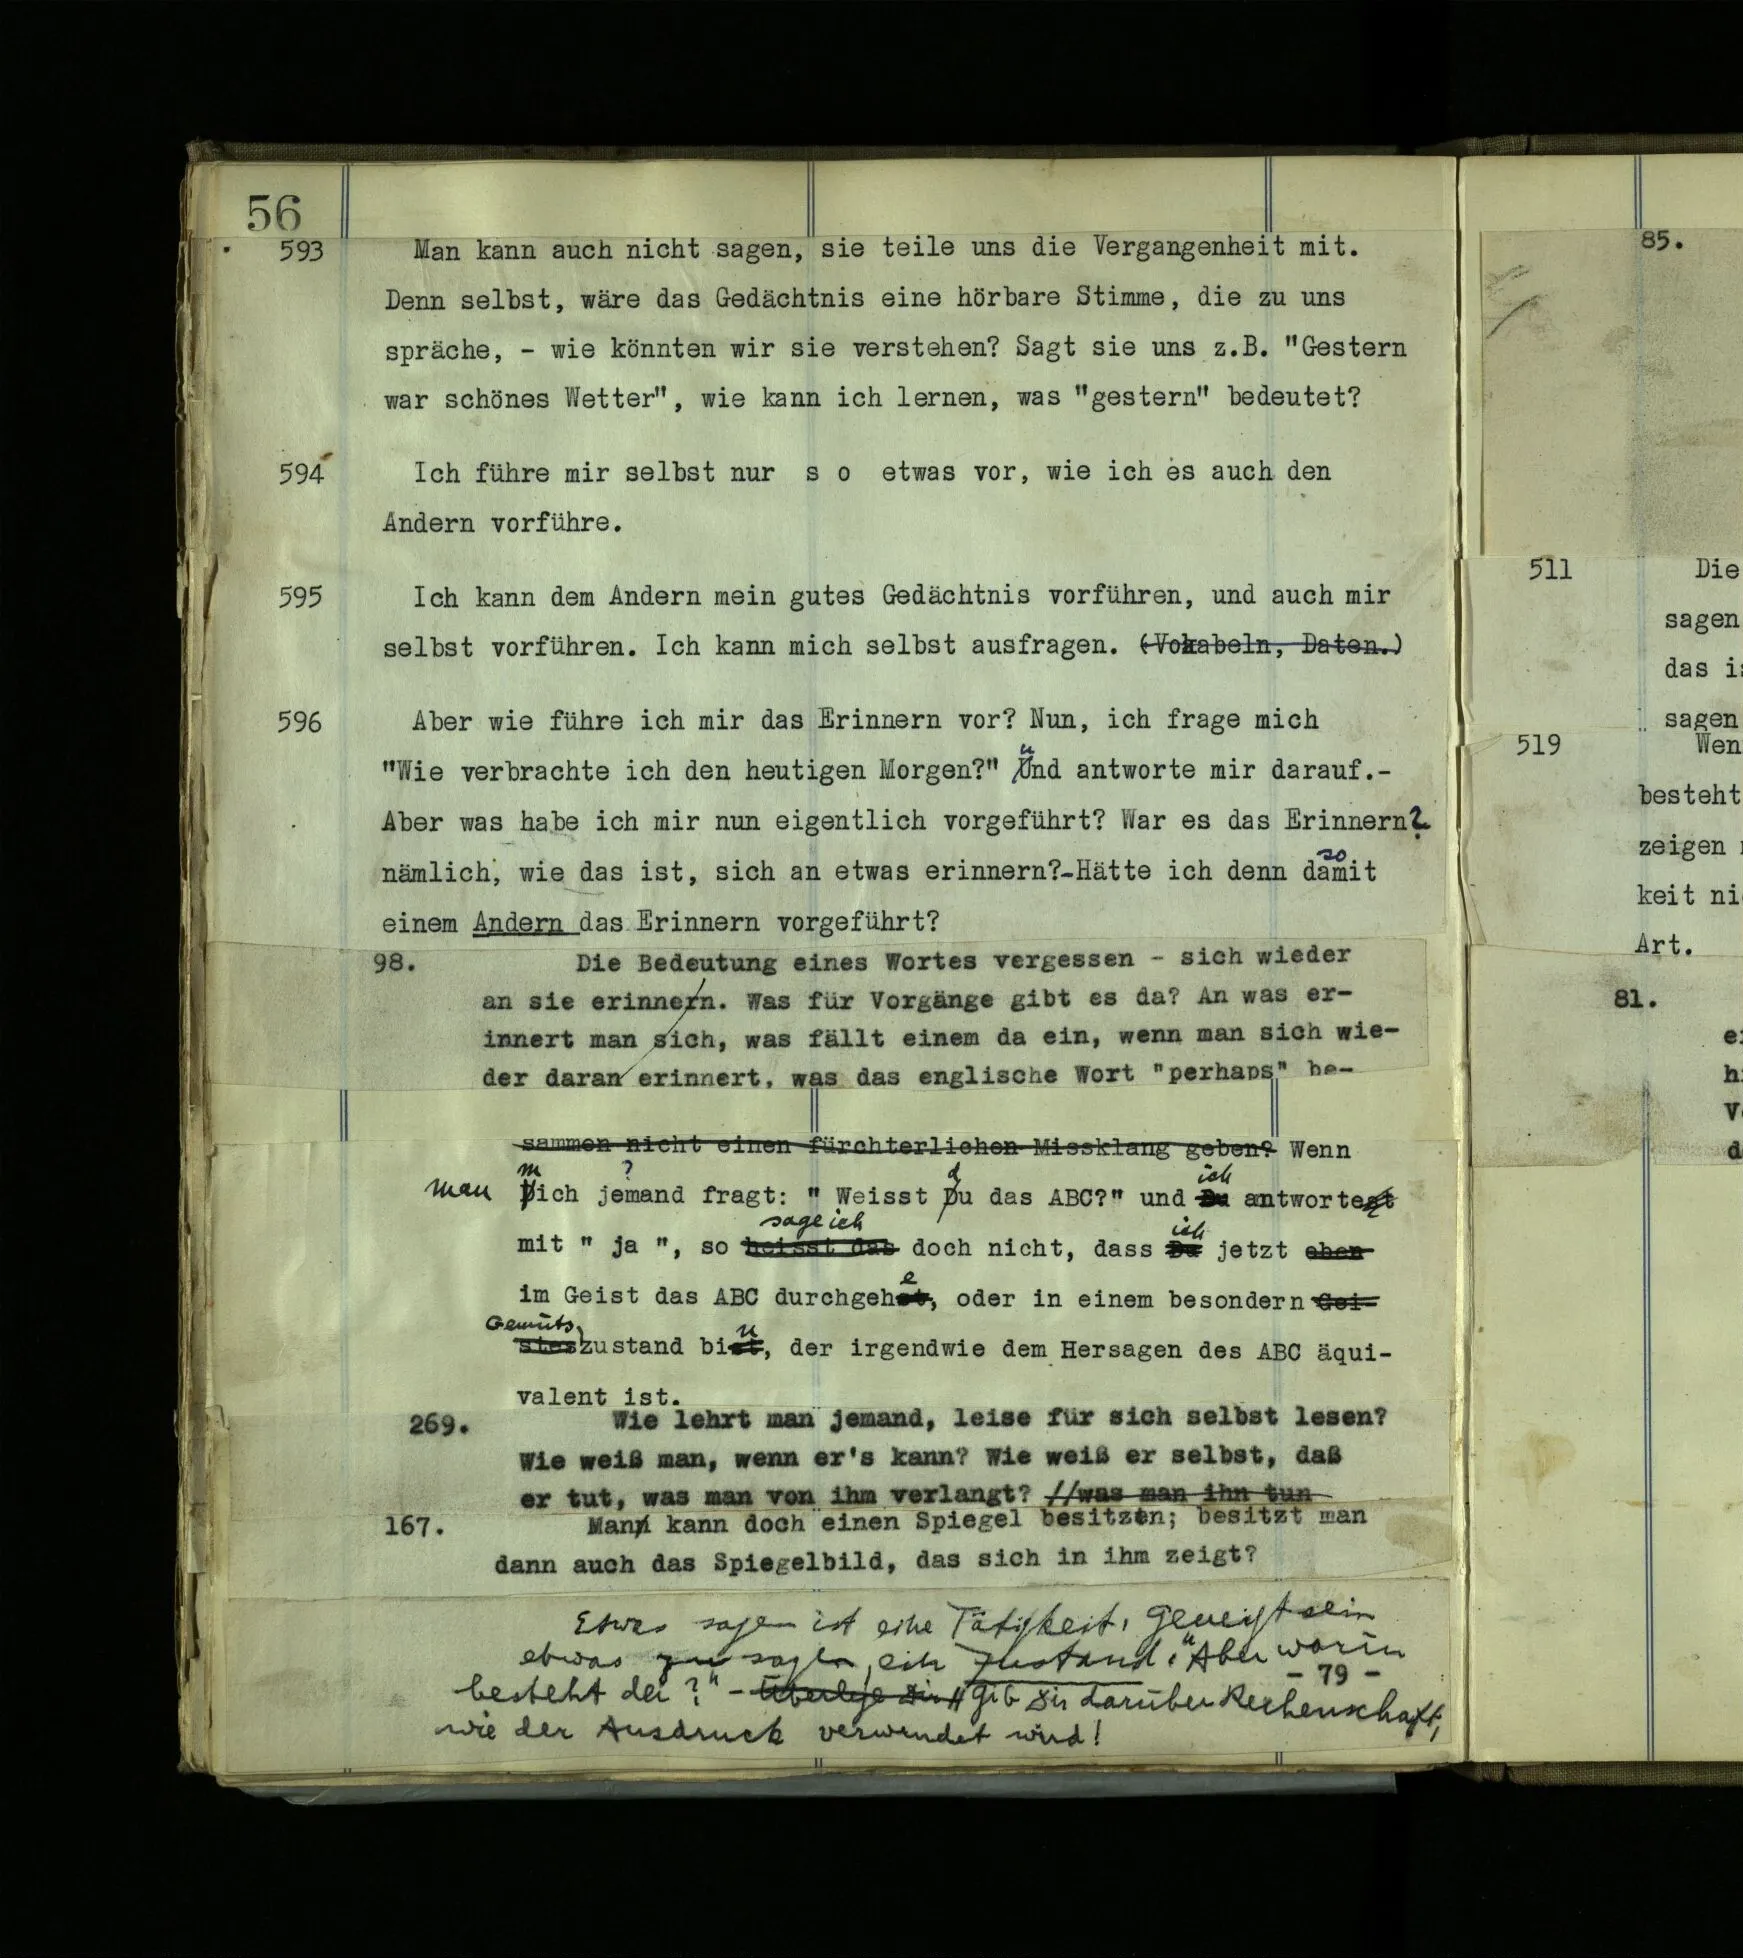 56
593 Man kann auch nicht sagen, sie teile uns die Vergangenheit mit.
Denn selbst, wäre das Gedächtnis eine hörbare Stimme, die zu uns
spräche, - wie könnten wir sie verstehen? Sagt sie uns z.B. "Gestern
war schönes Wetter", wie kann ich lernen, was "gestern" bedeutet?
594 Ich führe mir selbst nur s o etwas vor, wie ich es auch den
Andern vorführe.
595 Ich kann dem Andern mein gutes Gedächtnis vorführen, und auch mir
selbst vorführen. Ich kann mich selbst ausfragen. (Vokabeln, Daten.)
596 Aber wie führe ich mir das Erinnern vor? Nun, ich frage mich
u
"Wie verbrachte ich den heutigen Morgen?" Und antworte mir darauf.-
Aber was habe ich mir nun eigentlich vorgeführt? War es das Erinnern?
so
nämlich, wie das ist, sich an etwas erinnern?-Hätte ich denn damit
einem Andern das Erinnern vorgeführt?
98. Die Bedeutung eines Wortes vergessen - sich wieder
an sie erinnern. Was für Vorgänge gibt es da? An was er-
innert man sich, was fällt einem da ein, wenn man sich wie-
der daran erinnert, was das englische Wort "perhaps" be-
sammen nicht einen fürchterlichen Missklang geben? Wenn
m ? d ich
man Dich jemand fragt: " Weisst Du das ABC?" und Du antwortest
sage ich ich
mit " ja ", so heisst das doch nicht, dass Du jetzt eben
e
im Geist das ABC durchgehst, oder in einem besondern Gei-
Gemüts n
steszustand bist, der irgendwie dem Hersagen des ABC äqui-
valent ist.
269. Wie lehrt man jemand, leise für sich selbst lesen?
Wie weiß man, wenn er's kann? Wie weiß er selbst, daß
er tut, was man von ihm verlangt? //was man ihn tun
167. Mann kann doch einen Spiegel besitzen; besitzt man
dann auch das Spiegelbild, das sich in ihm zeigt?
Etwas sagen ist eine Tätigkeit, geneigt sein
etwas zu sagen, ein Zustand. "Aber worin
- 79 -
besteht der?" - Überlege Dir // gib Dir darüber Rechenschaft,
wie der Ausdruck verwendet wird!
85.
511 Die
sagen
das is
sagen
519 Wen
besteht
zeigen
keit ni
Art.
81.